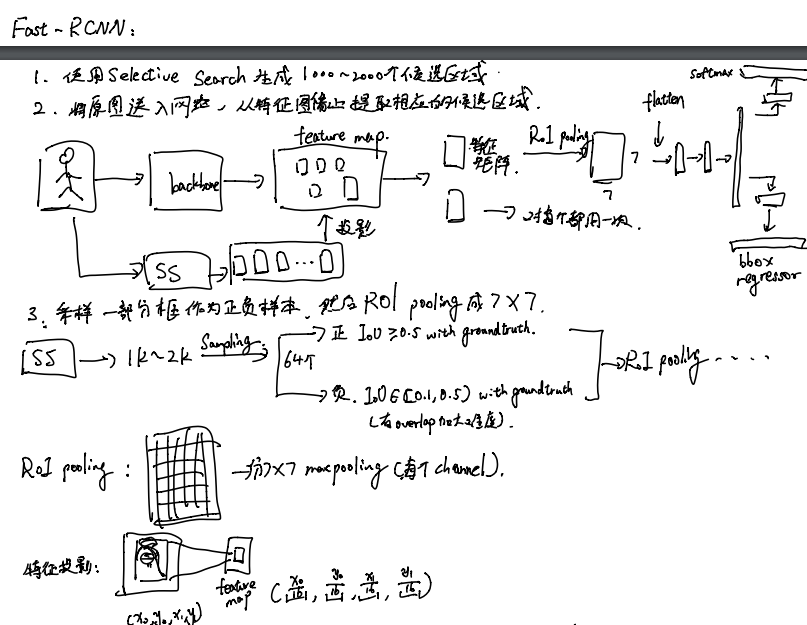 Fast-RCNN:
1. 使用Selective Search生成1000~2000个候选区域.
2. 将原图送入网络,从特征图像上提取相应的候选区域.
softmax
flatten
feature map.
backbone
特征
矩阵.
RoI pooling
7
7
→ 对每个都用一次.
投影
SS
...
bbox
regressor
3. 采样一部分框作为正负样本,然后ROI pooling成7×7.
SS → 1k~2k Sampling: 64个
正 IoU ≥0.5 with groundtruth.
负. IoU∈[0.1, 0.5) with groundtruth
(有overlap但)
→ RoI pooling .....
RoI pooling: 分7×7 maxpooling (每个channel).
特征投影:
feature
map
(x₀/16, y₀/16, x₁/16, y₁/16)
(x₀, y₀, x₁, y₁)